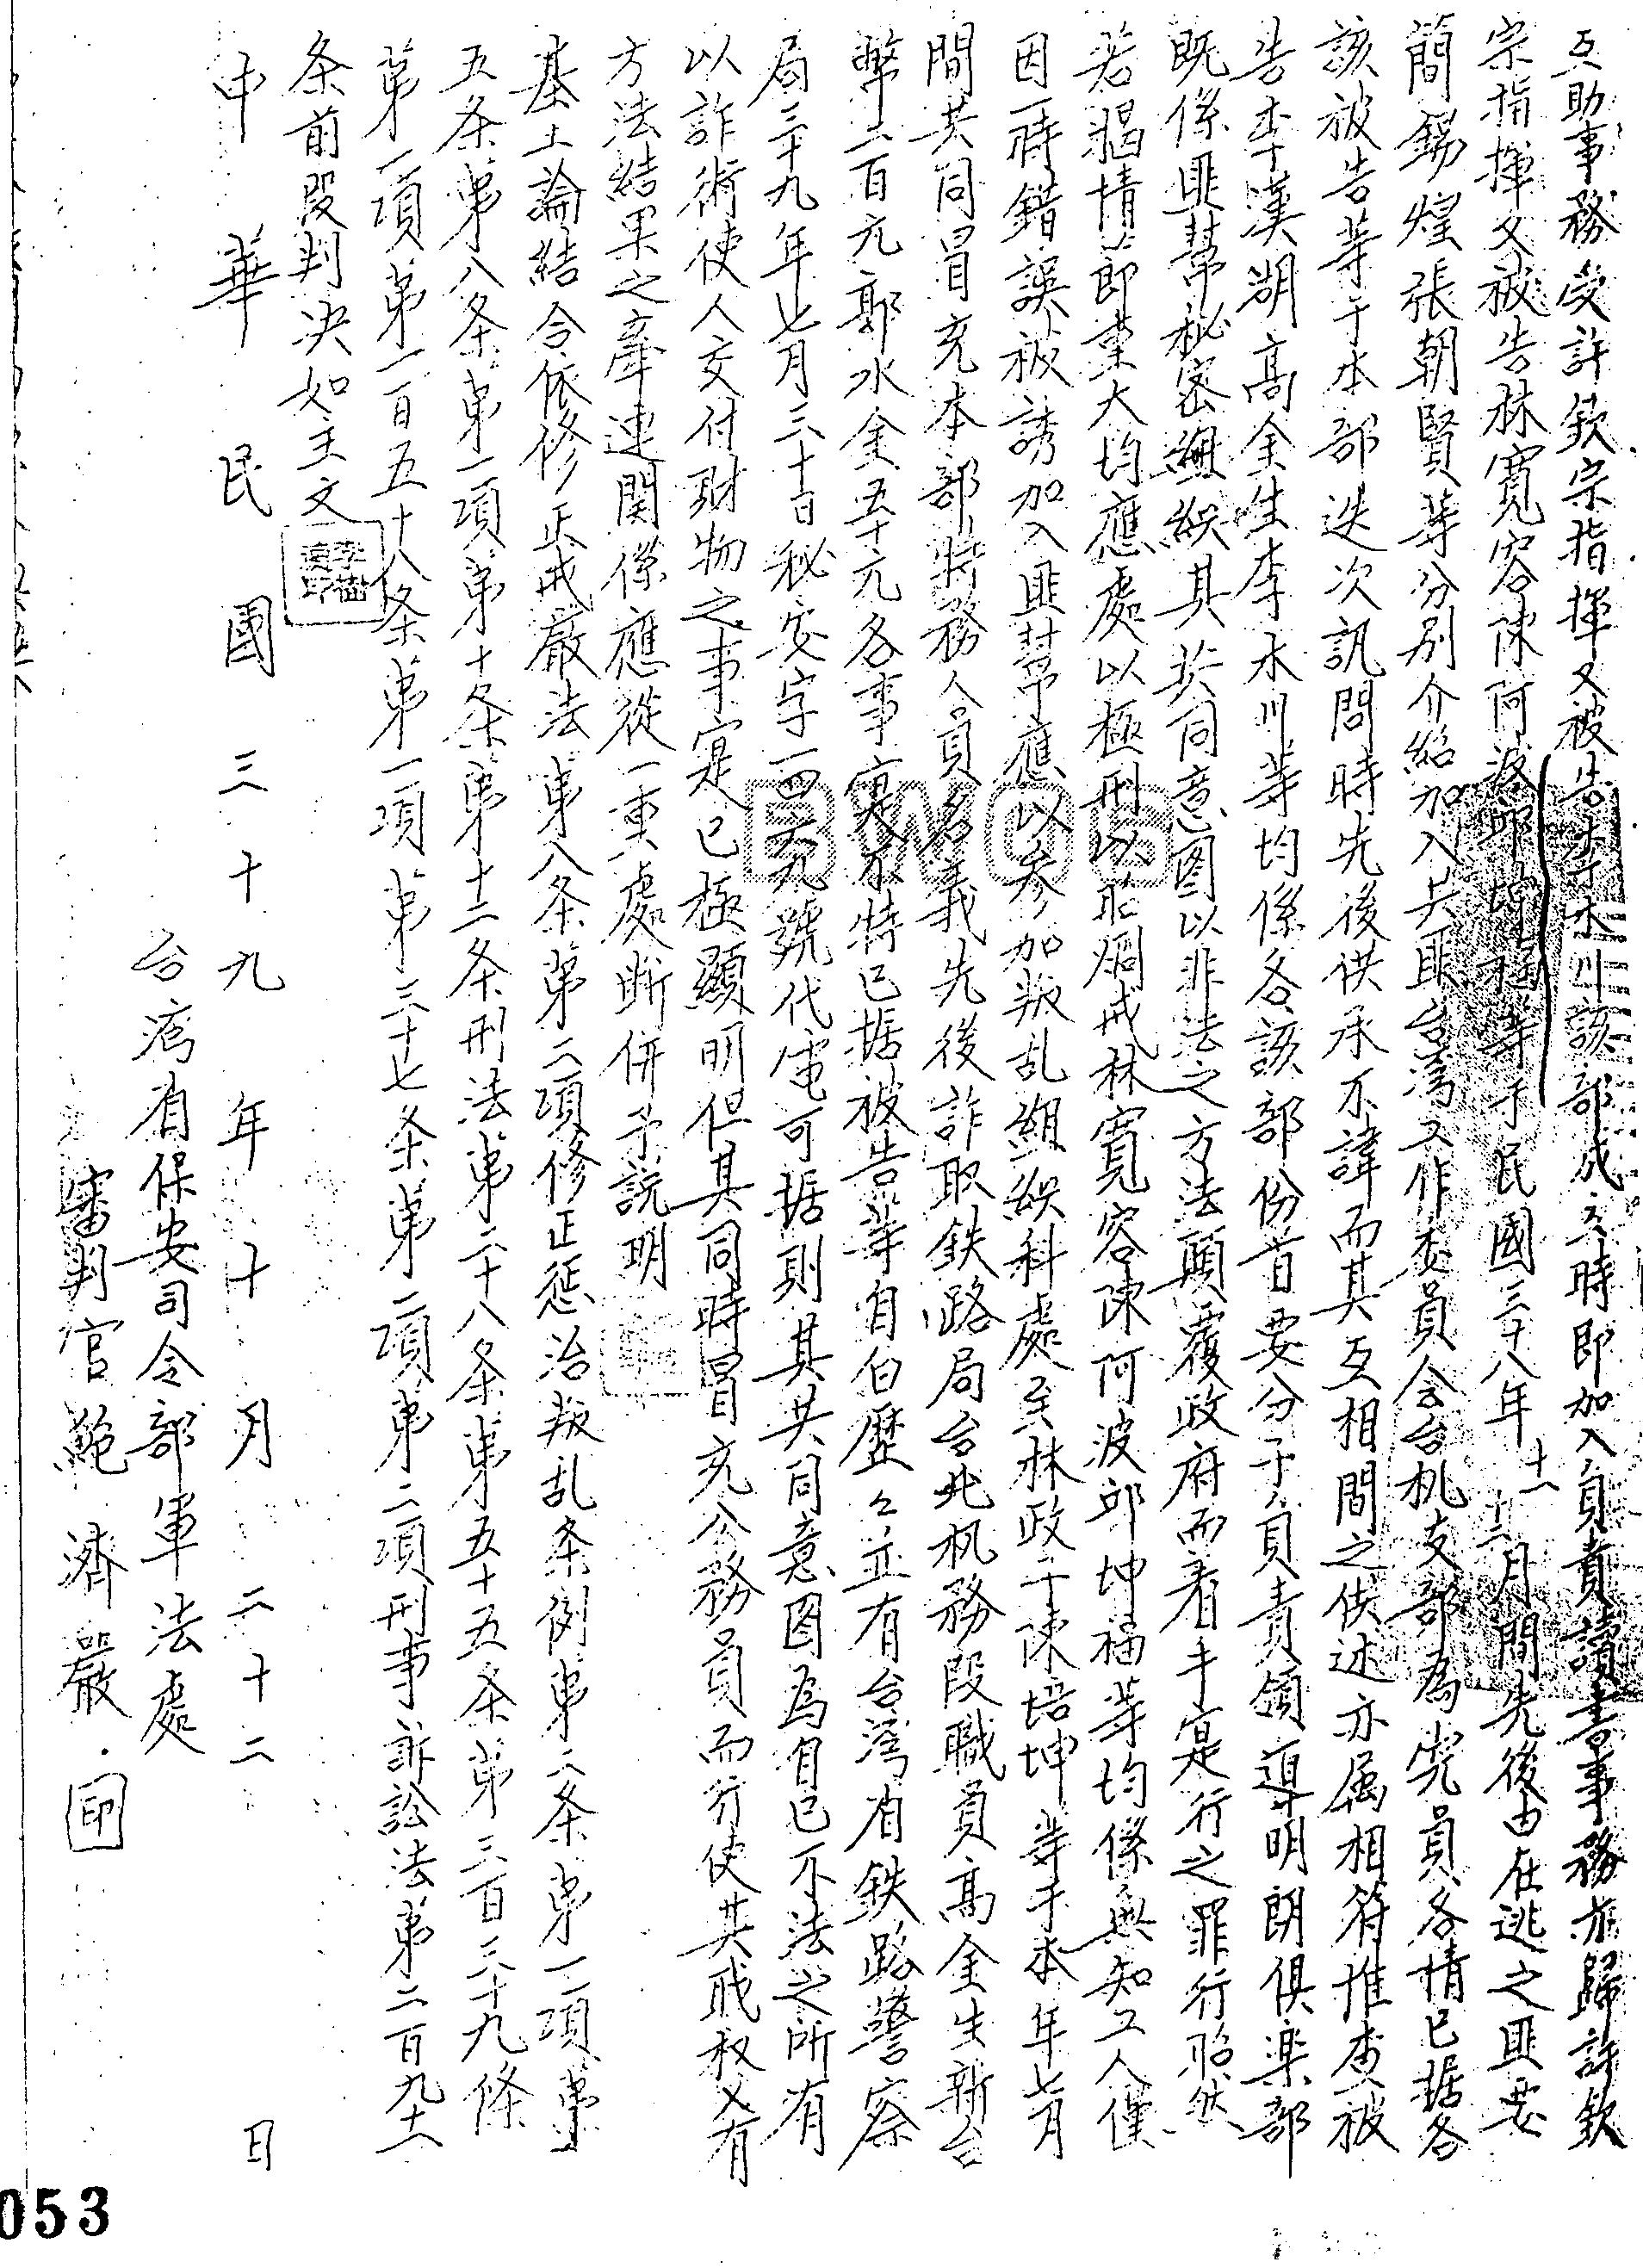 互助事務受許欽宗指揮又被告李水川該部成立時即加入負責讀書事務亦歸許欽
宗指揮又被告林寬容陳阿波邱坤福等于民國三十八年十一十二月間先後由在逃之匪要
簡錫煌張朝賢等分别介紹加入共匪台湾工作委員会台机支部為党員各情已据各
該被告等于本部迭次訊問時先後供承不諱而其互相間之供述亦属相符惟查被
告李漢湖高金生李水川等均係各該部份首要分子負責領導明朗俱楽部
既係匪幫秘密組織其共同意图以非法之方法顛覆政府而着手寔行之罪行昭然
若揭情節重大均應處以極刑以昭烱戒林寬容陳阿波邱坤福等均係無知工人僅
因一時錯誤被誘加入匪幫應以参加叛乱組織科處至林政子陳培坤等于本年七月
間共同冒充本部特務人員名義先後詐取鉄路局台北机務段職員高金生新台
幣二百元郭水金五十元各事寔不特已据被告等自白歷々並有台湾省鉄路警察
局三十九年七月三十日秘安字一四六九號代電可据則其共同意图為自己不法之所有
以詐術使人交付財物之事寔已極顯明但其同時冒充公務員而行使其職权又有
方法結果之牽連関係應從一重處断併予説明
基上論結合依修正戒嚴法第八条第二項修正惩治叛乱条例第二条第一項第
五条第八条第一項第十条第十二条刑法第二十八条第五十五条第三百三十九條
第一項第一百五十八条第一項第三十七条第二項第二項刑事訴訟法第二百九十一
条前段判决如主文
中華民國三十九年十月二十二日
台湾省保安司令部軍法處
審判官範濟嚴 印
BWCS
053